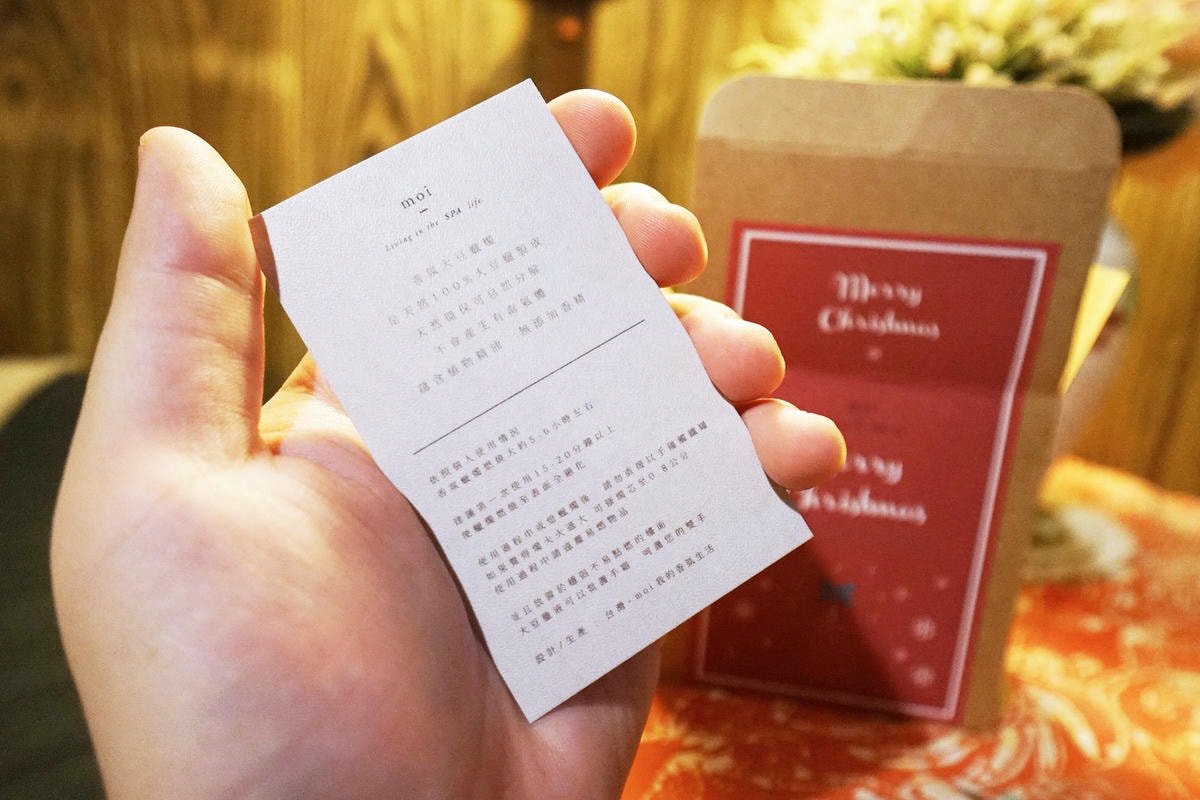 moi
Living in the SPA life.
香氛大豆蠟燭
是天然100%大豆蠟製成
天然環保可自然分解
不會產生有毒氣體
蘊含植物精油 無添加香精
依照個人使用情況
香氛蠟燭燃燒大約5-6小時左右
建議第一次使用15-20分鐘以上
使蠟燭燃燒至表面全融化
使用過程中或熄蠟燭後 請勿直接以手碰觸鐵罐
如果覺得燭火火過大 可修燭芯至0.8公分
使用過程中請遠離易燃物品
並且放置於穩固不易點燃的檯面
大豆蠟液可以當護手霜 呵護您的雙手
設計/生產：台灣-moi我的香氛生活
Merry
Christmas
Merry
Christmas